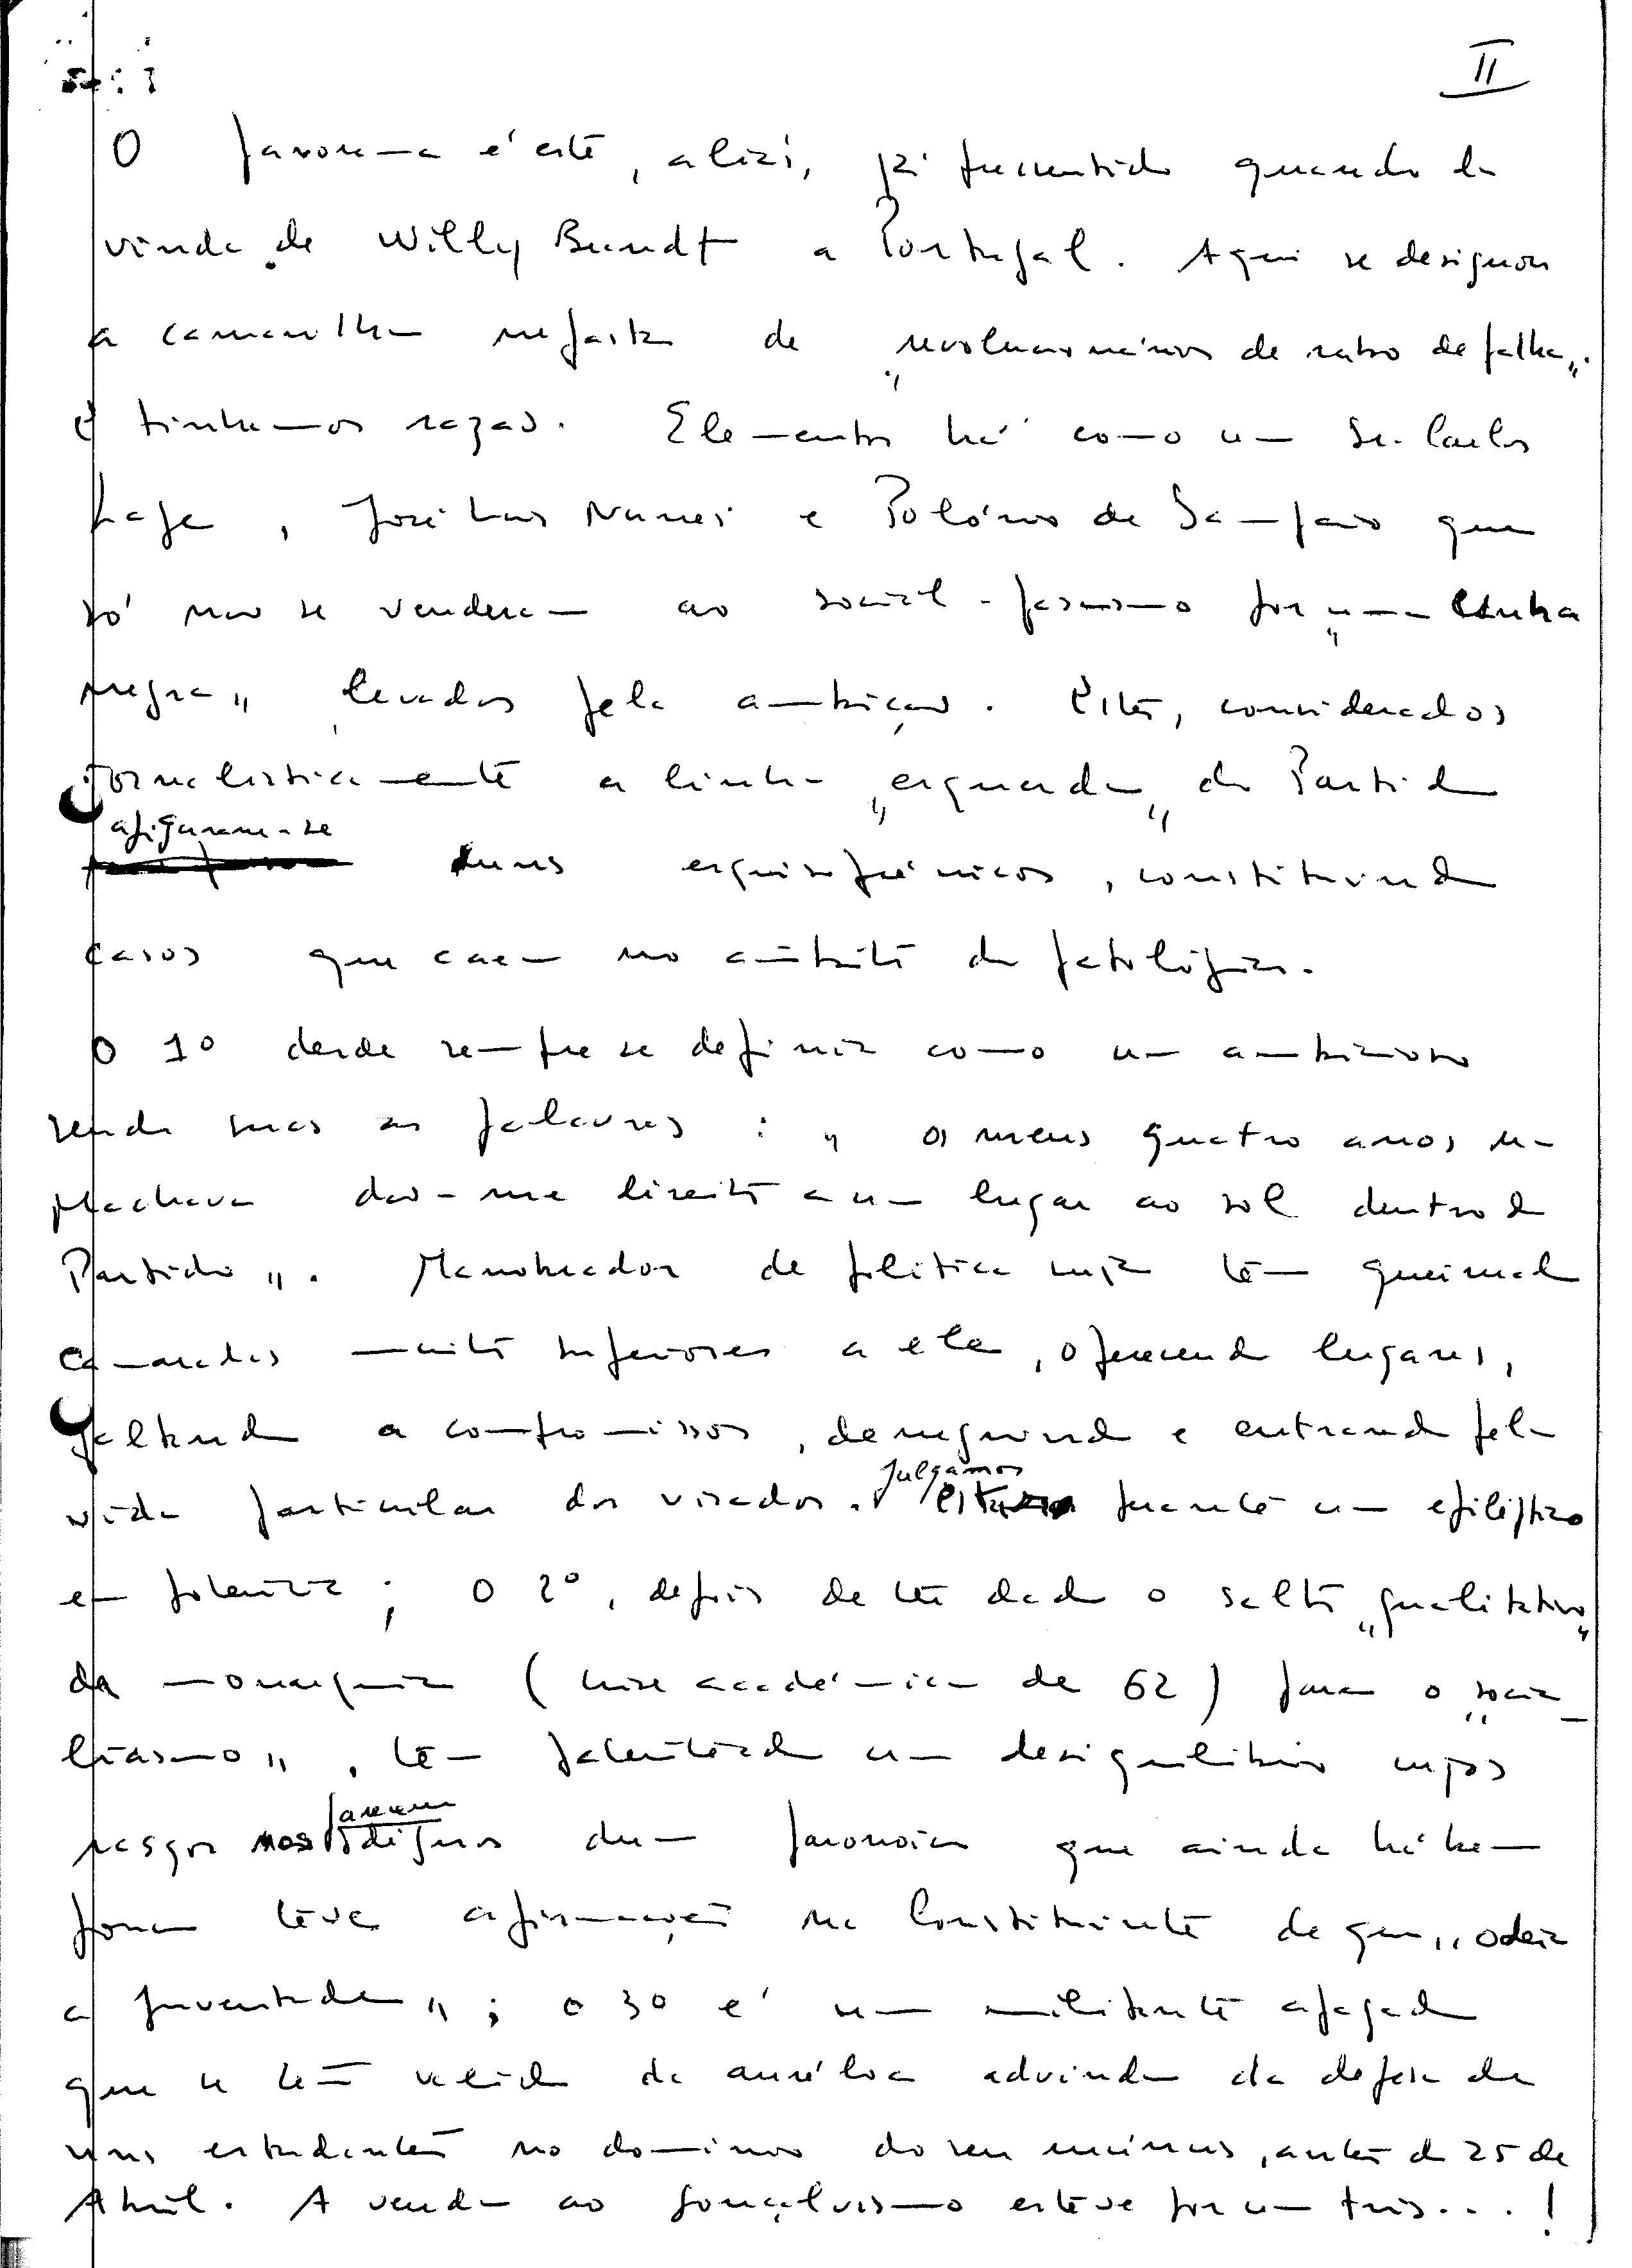 II
O panorama é este, aliás, já pressentido quando da
vinda de Willy Brandt a Portugal. Aqui se designou
a camarilha nefasta de "revolucionários de rabo de palha".
E tinhamos razão. Elementos há como um Sr. Carlos
Lage, José Luis Nunes e Polónio de Sampaio que
só não se venderam ao social-fascismo por uma "linha
negra" levados pela ambição. Estes, considerados
jornalisticamente a linha "esquerda" do Partido
afiguram-se
duns esquisofrénicos, constituindo
casos que caem no âmbito da patologia.
O 1º desde sempre se definiu como um ambicioso
sendo suas as palavras: "os meus quatro anos na
Machava dão-me direito a um lugar ao sol dentro do
Partido". Manobrador de política suja tem queimado
camaradas muito superiores a ele, oferecendo lugares,
faltando a compromissos, denegrindo e entrando pela
vida particular dos visados. Julgamos estar perante um epiléptico
em potência; o 2º, depois de ter dado o salto "qualitativo"
da monarquia (crise académica de 62) para o "socia-
lismo", tem patenteado um desiquilíbrio cujos
rasgos nos parecem dignos dum paranoico que ainda há bem
pouco teve afirmações na Constituinte de que "odeia
a juventude"; o 3º é um militante apagado
que se tem valido da auréola advinda da defesa de
uns estudantes no domínio do seu múnus, antes do 25 de
Abril. A venda ao gonçalvismo esteve por um tris...!